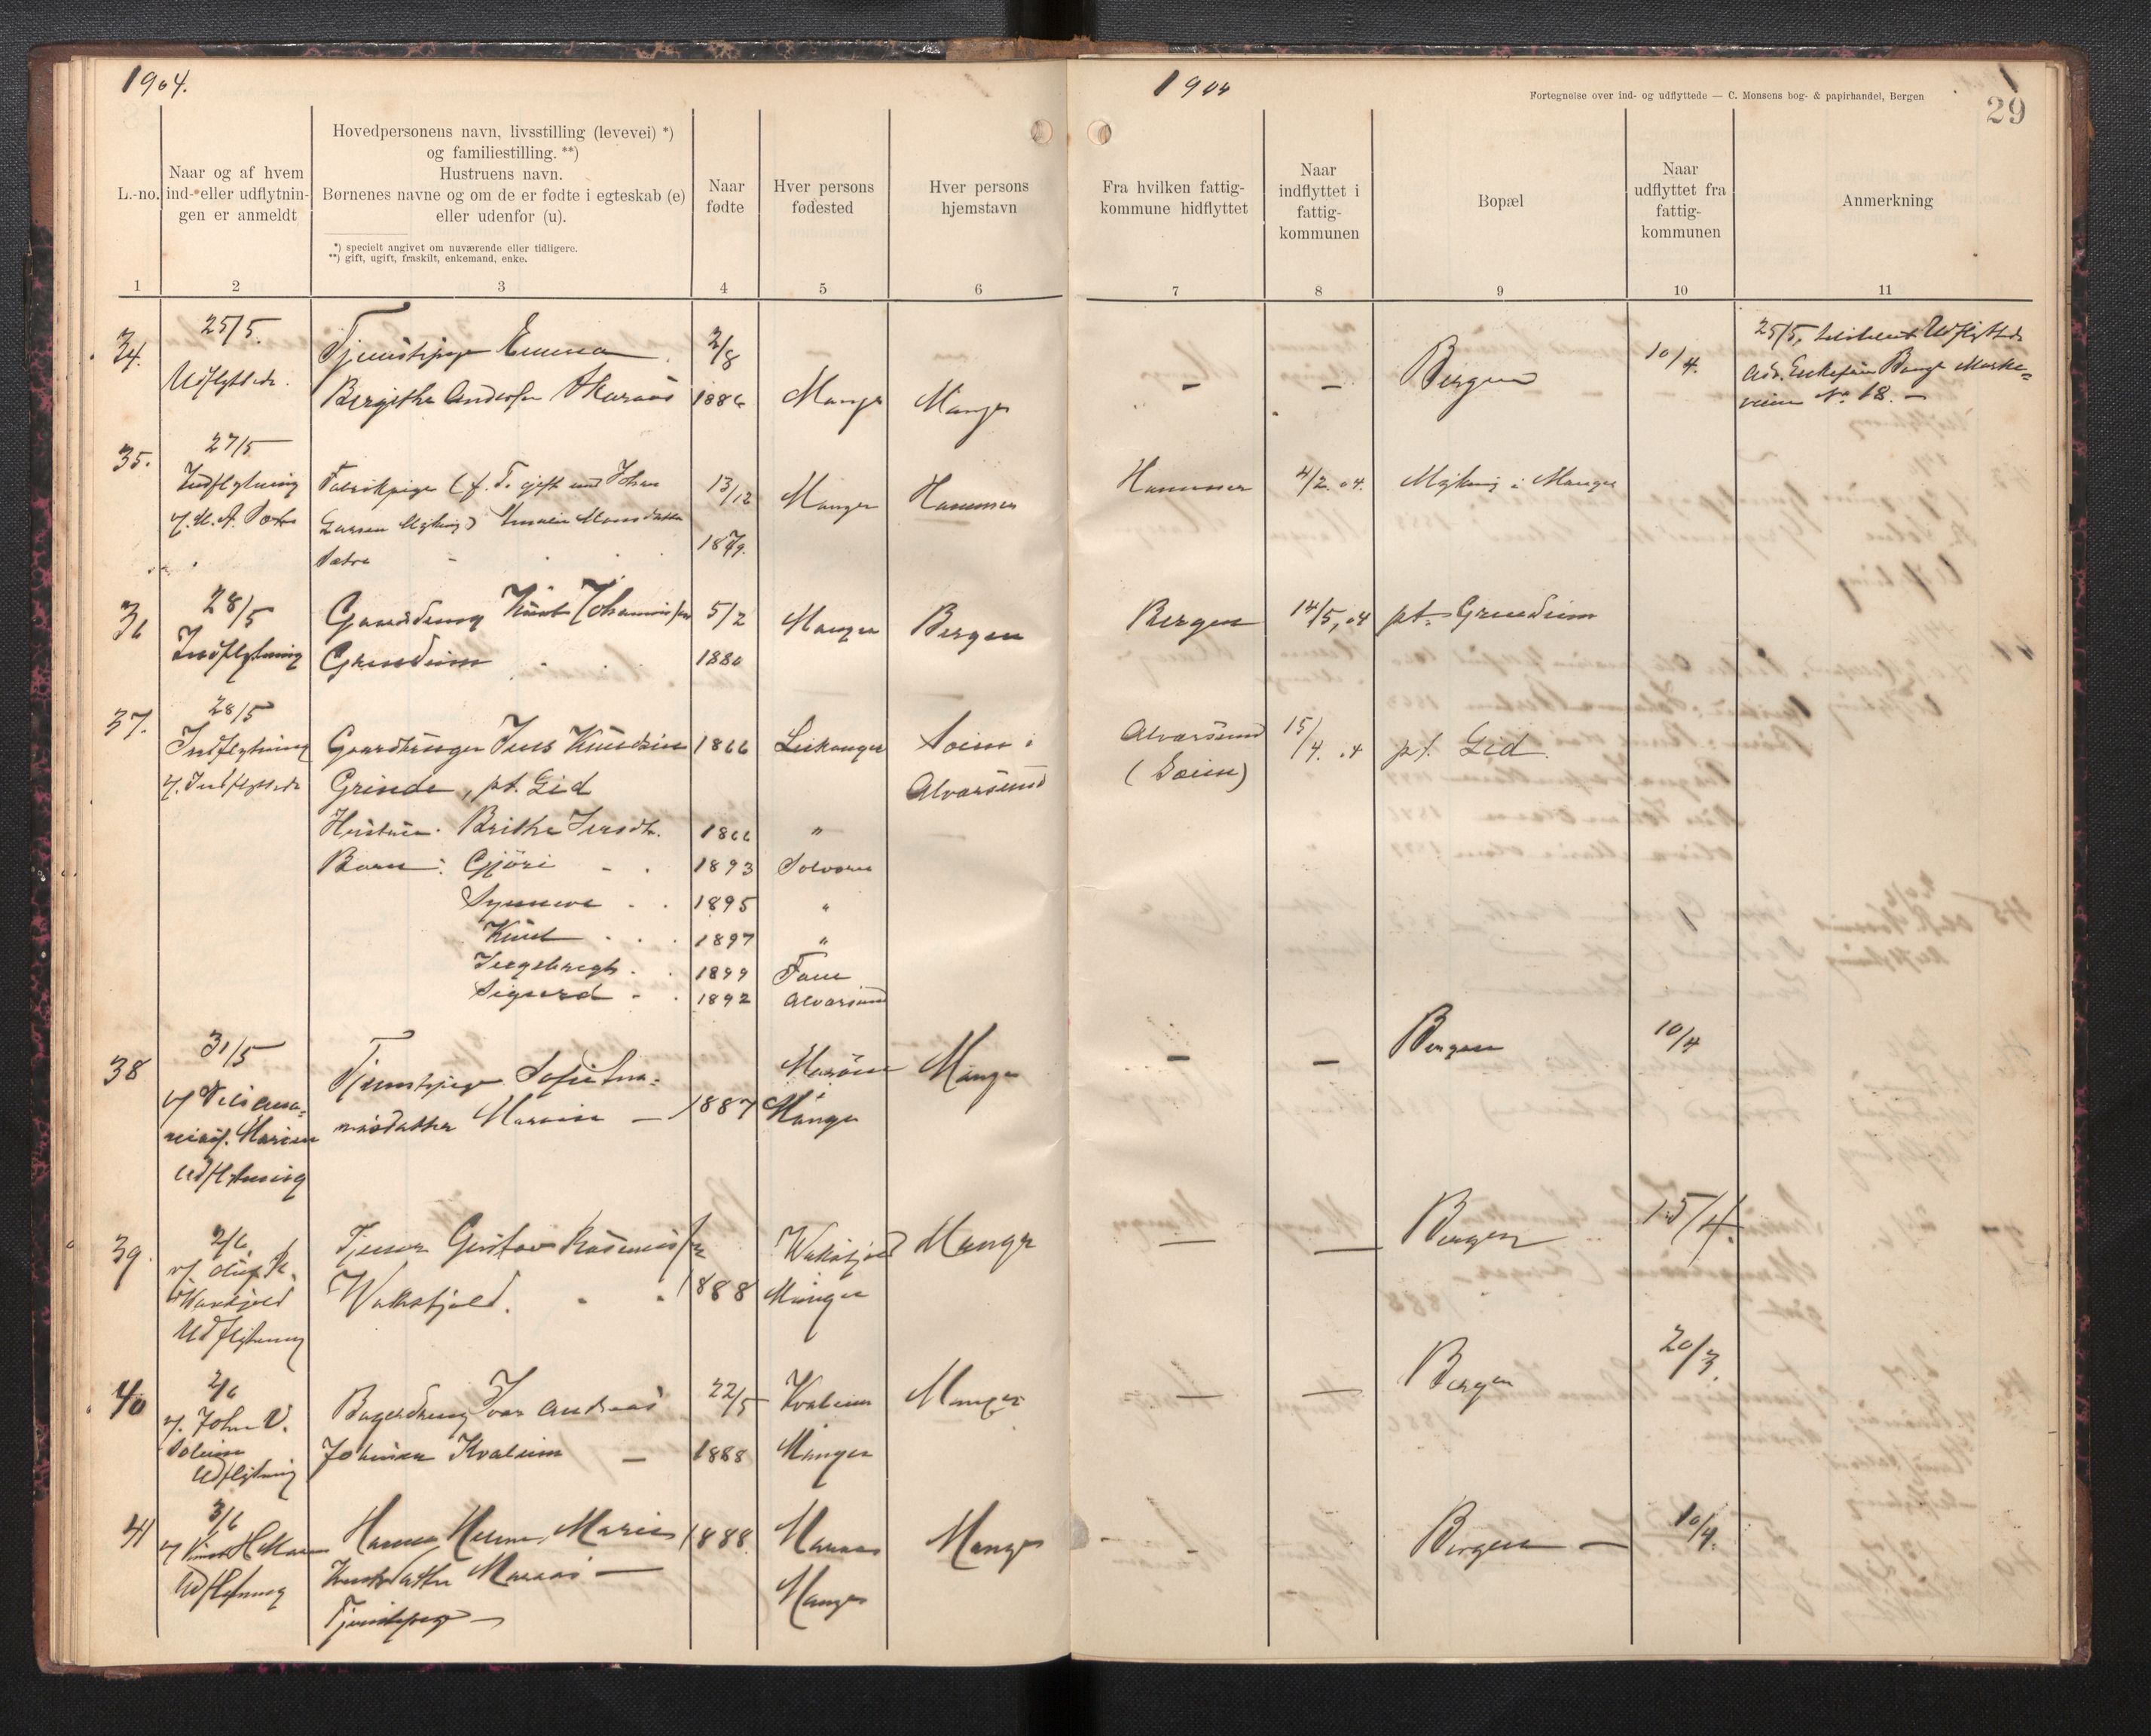 1904.
1904
Fortegnelse over ind- og udflyttede — C. Monsens bog- & papirhandel, Bergen
29
L.-no.
Naar og af hvem
ind- eller udflytnin-
gen er anmeldt
Hovedpersonens navn, livsstilling (levevei) *)
og familiestilling. **)
Hustruens navn.
Børnenes navne og om de er fødte i egteskab (e)
eller udenfor (u).
*) specielt angivet om nuværende eller tidligere.
**) gift, ugift, fraskilt, enkemand, enke.
Naar
fødte
Hver persons
fødested
Hver persons
hjemstavn
Fra hvilken fattig-
kommune hidflyttet
Naar
indflyttet i
fattig-
kommunen
Bopæl
Naar
udflyttet fra
fattig-
kommunen
Anmerkning
1 2 3 4 5 6 7 8 9 10 11
34.
25/5.
Udflyttede.
Tjenestepige Emma
Bergithe Andersen
2/8
1886
Manger
Manger
-
-
Bergen
10/4.
25/5, Udflyttede
No 18. -
35.
27/5
Indflytning
Fabrikpige (f. T. gift med Johan
Larsen Mykking)
Sætre
13/12
1879.
Manger
Hammer
Hammer
4/2. 04.
Mykking i Manger
36
28/5
Indflytning
Gaardsdreng Knut Johannessen
Grendeim
5/2
1880
Manger
Bergen
Bergen
14/5, 04
pt. Grendeim
37.
28/5
Indflytning
v. Indflyttede
Gaardbruger Jens Knudsen
Grinde, pt. Lid
Hustru: Brithe Jensdtr.
Barn: Gjöri
Synneve
Knut
Ingebregt
Sigurd
1866
1866
1893
1895
1897
1899
1892
Leikanger
"
Solvorn
"
"
Fane
Alversund
Soeim i
Alversund
Alversund
(Soeim)
15/4. 04
pt. Lid
38
31/5
Udflytning
Tjenestepige Sofie
1887
Manger
Manger
-
-
Bergen
10/4
39.
2/6
Udflytning
Tjener Gustav Rasmussen
1888
Manger
Manger
-
-
Bergen
15/4.
40
2/6
v. John V.
Soleim
Udflytning
Bagerdreng Ivar Andreas
Johnsen Kvaleim -
22/5
1888
Kvaleim
Manger
Manger
-
-
Bergen
20/3.
41
3/6
Udflytning
Hanna
Knutsdatter Maraas -
Tjenestepige -
1888
Maraas
Manger
Manger
-
-
Bergen -
10/4.